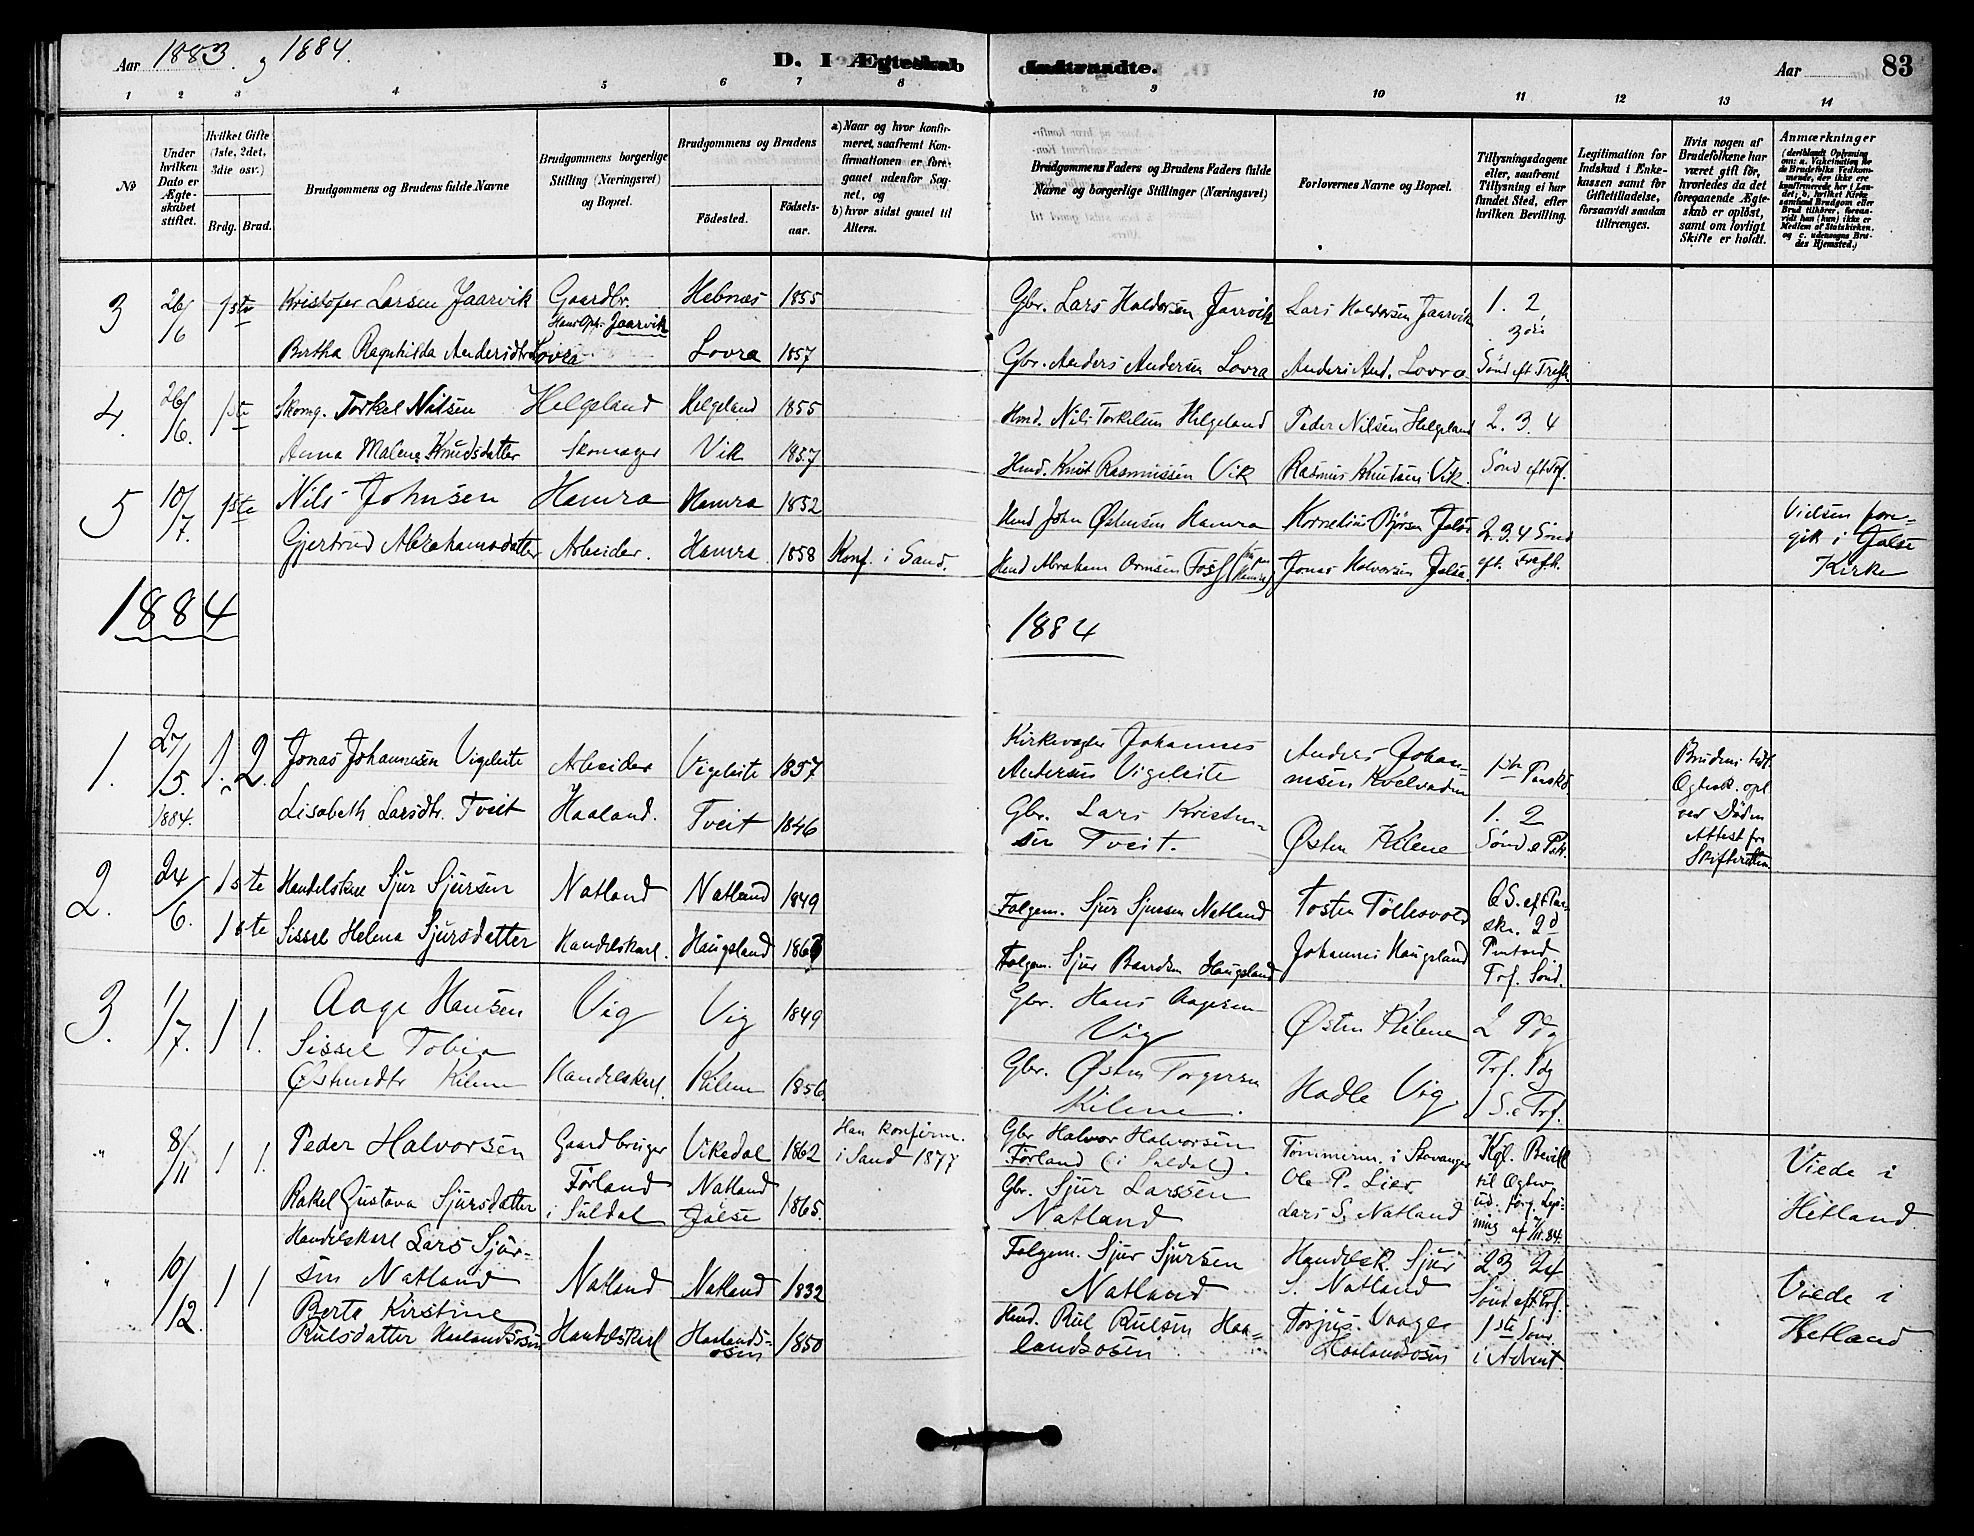 Aar 1883. og 1884.
D. I Ægteskab Indtraadte.
Aar 83
1 2 3 4 5 6 7 8 9 10 11 12 13 14
No
Under hvilken Dato er Ægteskabet stiftet.
Hvilket Gifte (1ste, 2det, 3die osv.)
Brdg. Brud.
Brudgommens og Brudens fulde Navne
Brudgommens borgerlige Stilling (Næringsvei) og Bopæl.
Brudgommens og Brudens
Födested.
Födselsaar.
a) Naar og hvor konfirmeret, saafremt Konfirmationen er foregaaet udenfor Sognet, og
b) hvor sidst gaaet til Alters.
Brudgommens Faders og Brudens Faders fulde Navne og borgerlige Stillinger (Næringsvei)
Forlovernes Navne og Bopæl.
Tillysningsdagene eller, saafremt Tillysning ei har fundet Sted, efter hvilken Bevilling.
Legitimation for Indskud i Enkekassen samt for Giftetilladelse, forsaavidt saadan tiltrænges.
Hvis nogen af Brudefolkene har været gift för, hvorledes da det foregaaende Ægteskab er oplöst, samt om lovligt Skifte er holdt.
Anmærkninger
(deriblandt Oplysning om: a. Vakcination for de Brudefolks Vedkommende, der ikke ere konfirmerede her i Landet; b. hvilket Kirkesamfund Brudgom eller Brud tilhörer, forsaavidt han (hun) ikke er Medlem af Statskirken, og c. udensogns Brudes Hjemsted.)
3 26/6 1ste Kristofer Larsen Jaarvik Gaardbr. Jaarvik Hebnæs 1855 Gbr. Lars Haldorsen Jaarvik Lars Haldorsen Jaarvik 1. 2, 3die
Bertha Ragnhilda Andersdtr Lovra Lovra 1857 Gbr. Anders Andersen Lovra Anders And. Lovra Sönd eft Trefh
4. 26/6. 1ste Skomg. Torkel Nilsen Helgeland Helgeland 1855 Hmd. Nils Torkelsen Helgeland Peder Nilsen Helgeland 2. 3. 4
Anna Malene Knudsdatter Skomager Vik 1857 Hmd. Knut Rasmussen Vik Rasmus Knutsen Vik. Sönd eft Trf.
5 10/7. 1ste Nils Johnsen Hamra Hamra 1852 Hmd John Østensen Hamra Kornelius Bjørsen Jelse 2. 3. 4 Sönd
Gjertrud Abrahamsdatter Arbeider. Hamra 1858 Konf. i Sand. Hmd Abraham Ormsen Foss Jonas Halvorsen Jelse. eft. Trefh.
Vielsen foregik i Jelse Kirke
1884
1884
1. 27/5. 1884. 1. 2. Jonas Johannesen Vigeleite Arbeider Vigeleite 1857 Kirkevægter Johannes Andersen Vigeleite Anders Johannesen
Lisabeth Larsdtr. Tveit Haaland. Tveit 1846 Gbr. Lars Kristensen Tveit. Østen Kilene 1. 2 Sönd e Psk.
Brudens tidl. Ogtesk. opl ved Döden Attest fra Skifteretten
2. 24/6. 1ste Handelskarl Sjur Sjursen Natland Natland 1849 Folgem. Sjur Sjursen Natland Tosten Töllevold 6 S. eft Paaskn. 2d
1ste Sissel Helena Sjursdatter Handelskarl. Haugeland Folgem. Sjur Baardsen Haugeland Johannes Haugeland Trf. Sönd.
3. 1/7. 1 1. Aage Hansen Vig Vig 1849 Gbr. Hans Aagesen Vig Østen Kilene 2 Pdg
Sissel Tobia Østensdtr Kilene Handelskarl. Kilene 1856. Gbr. Østen Torgersen Kilene. Hadle Vig. Trf. Pdg 1 S. e Trf.
" 8/11 1 1. Peder Halvorsen Gaardbruger Förland i Suldal Vikedal 1862 Han konfirm. i Sand 1877 Gbr Halvor Halvorsen Førland (i Suldal). Tömmerm. i Stavanger Ole P. Lier Kgl. Bevill
Rakel Gustava Sjursdatter Natland Jelse 1865. Gbr. Sjur Larssen Natland Lars S. Natland af 7/11.84.
Viede i Hetland
" 10/12. 1 1 Handelskarl Lars Sjursen Natland Natland Natland 1832 Folgem. Sjur Sjursen Natland Handelsk. Sjur S. Natland 23 24 Sönd eft Trf.
Berta Kirstine Rulsdatter Haalandsosen Handelskarl Haalandsosen 1850 Hmd. Rul Rulsen Haalandsosen Torjus Vaage Haalandsosen 1ste Sönd i Advent.
Viede i Hetland